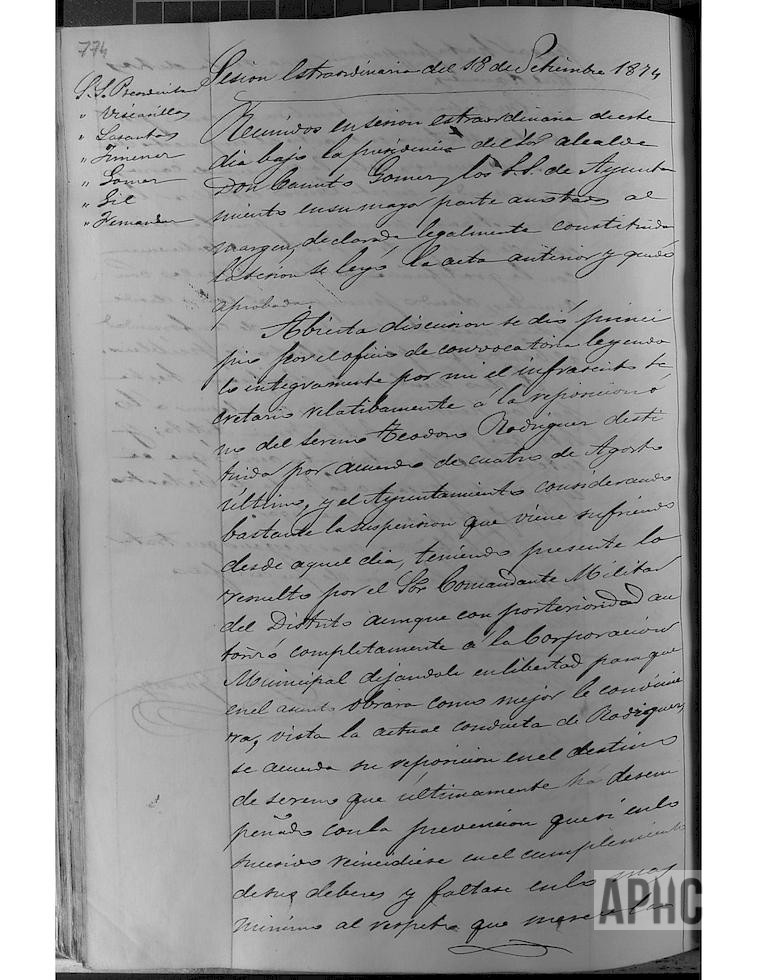 774
Sesion Estraordinaria del 18 de Setiembre 1874
S.S. Presidente
" Viscasillas
" Lasantas
" Jimenez
" Gomez
" Gil
" Fernandez
Reunidos en sesion estraordinaria de este
dia bajo la presidencia del Sor alcalde
Don Canuto Gomez, los S.S. de Ayunta
miento en su mayor parte anotados al
margen, declarada legalmente constituida
la sesion se leyó la acta anterior y quedó
aprobada.
Abierta discusion se dió princi
pio por el oficio de convocatoria leyendo
lo integramente por mi el infrascrito Se
cretario relatibamente á la reposicion ó
no del sereno Teodoro Rodriguez desti
tuido por acuerdo de cuatro de Agosto
último, y el Ayuntamiento considerando
bastante la suspension que viene sufriendo
desde aquel dia, teniendo presente lo
resuelto por el Sor Comandante Militar
del Distrito aunque con posterioridad au
torizó completamente á la Corporacion
Municipal dejandole en libertad para que
en el asunto obrara como mejor le convinie
ra, vista la actual conducta de Rodriguez,
se acuerda su reposicion en el destino
de sereno que últimamente há desem
peñado con la prevencion que si en lo
sucesivo reincidiese en el cumplimiento
de sus deberes y faltase en lo mas
minimo al respeto que merece la
APHC